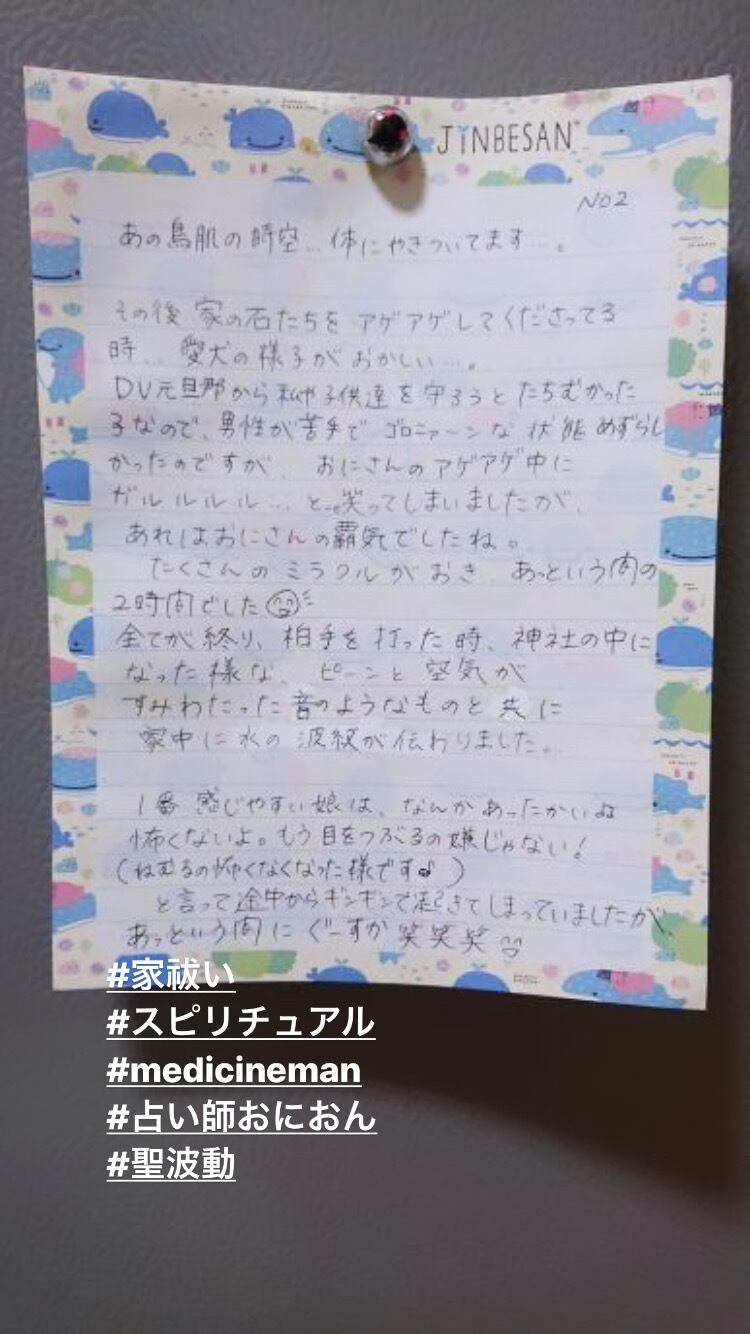 JINBESAN
NO2
あの鳥肌の時空…体にやきついてます…。
その後 家の石たちを アゲアゲしてくださってる
時… 愛犬の様子がおかしい…。
DV元旦那から私や子供達を守ろうとたちむかった
子なので、男性が苦手で ゴロニァ〜ンな 状態 めずらし
かったのですが、おにさんのアゲアゲ中に
ガルルルル… と… 笑ってしまいましたが、
あれはおにさんの覇気でしたね。
たくさんの ミラクルが おき、あっという間の
2時間でした
全てが終り、相手を 打った 時、神社の中に
なった様な、ピーンと 空気が
すみわたった 音のようなものと 共に
家中に水の 波紋が 伝わりました。
1番 感じやすい娘は、なんか あったかいよ
怖くないよ。もう目をつぶるの嫌じゃない!
(ねむるの怖くなくなった様です♪)
と言って途中からギンギンで起きてしまっていましたが、
あっという間に ぐーすか 笑笑笑
#家祓い
#スピリチュアル
#medicineman
#占い師おにおん
#聖波動